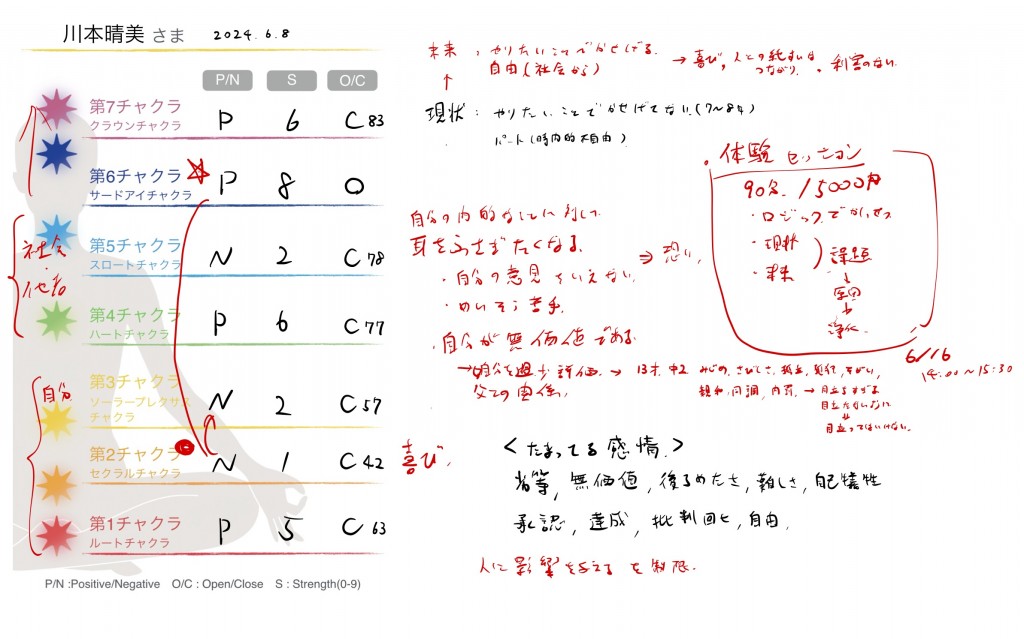 川本晴美 さま 2024.6.8
P/N S O/C
第7チャクラ
クラウンチャクラ
P 6 C 83
第6チャクラ
サードアイチャクラ
P 8 O
第5チャクラ
スロートチャクラ
N 2 C 78
第4チャクラ
ハートチャクラ
P 6 C 77
第3チャクラ
ソーラープレクサス
チャクラ
N 2 C 57
第2チャクラ
セクラルチャクラ
N 1 C 42
第1チャクラ
ルートチャクラ
P 5 C 63
社会
他者
自分
P/N :Positive/Negative O/C : Open/Close S : Strength(0-9)
未来 : やりたいことでかせげてる.
自由(社会から)
→ 喜び, 人との
つながり. ・利害のない
↑
現状 : やりたいことでかせげてない.(7~8年)
パート(時内的不自由)
自分の内的な
耳をふさぎたくなる. ⇒ 恐い.
・自分の意見をいえない.
・めいそう苦手.
・自分が無価値である.
→自分を過少評価. → 13才. 中2 みじめ, さびしさ, 孤立,
父との関係,
→ 目立ちすぎる
目立たないように
目立ってはいけない.
・体験 セッション
90分. 15000円
・ロジック
・現状
・未来
課題
↓
原因
↓
浄化.
6/16
14:00~15:30
喜び.
<たまってる感情.>
劣等, 無価値, 後ろめたさ, 難しさ, 自己犠牲
承認, 達成, 批判回ヒ, 自由,
人に影響を与えるを制限.